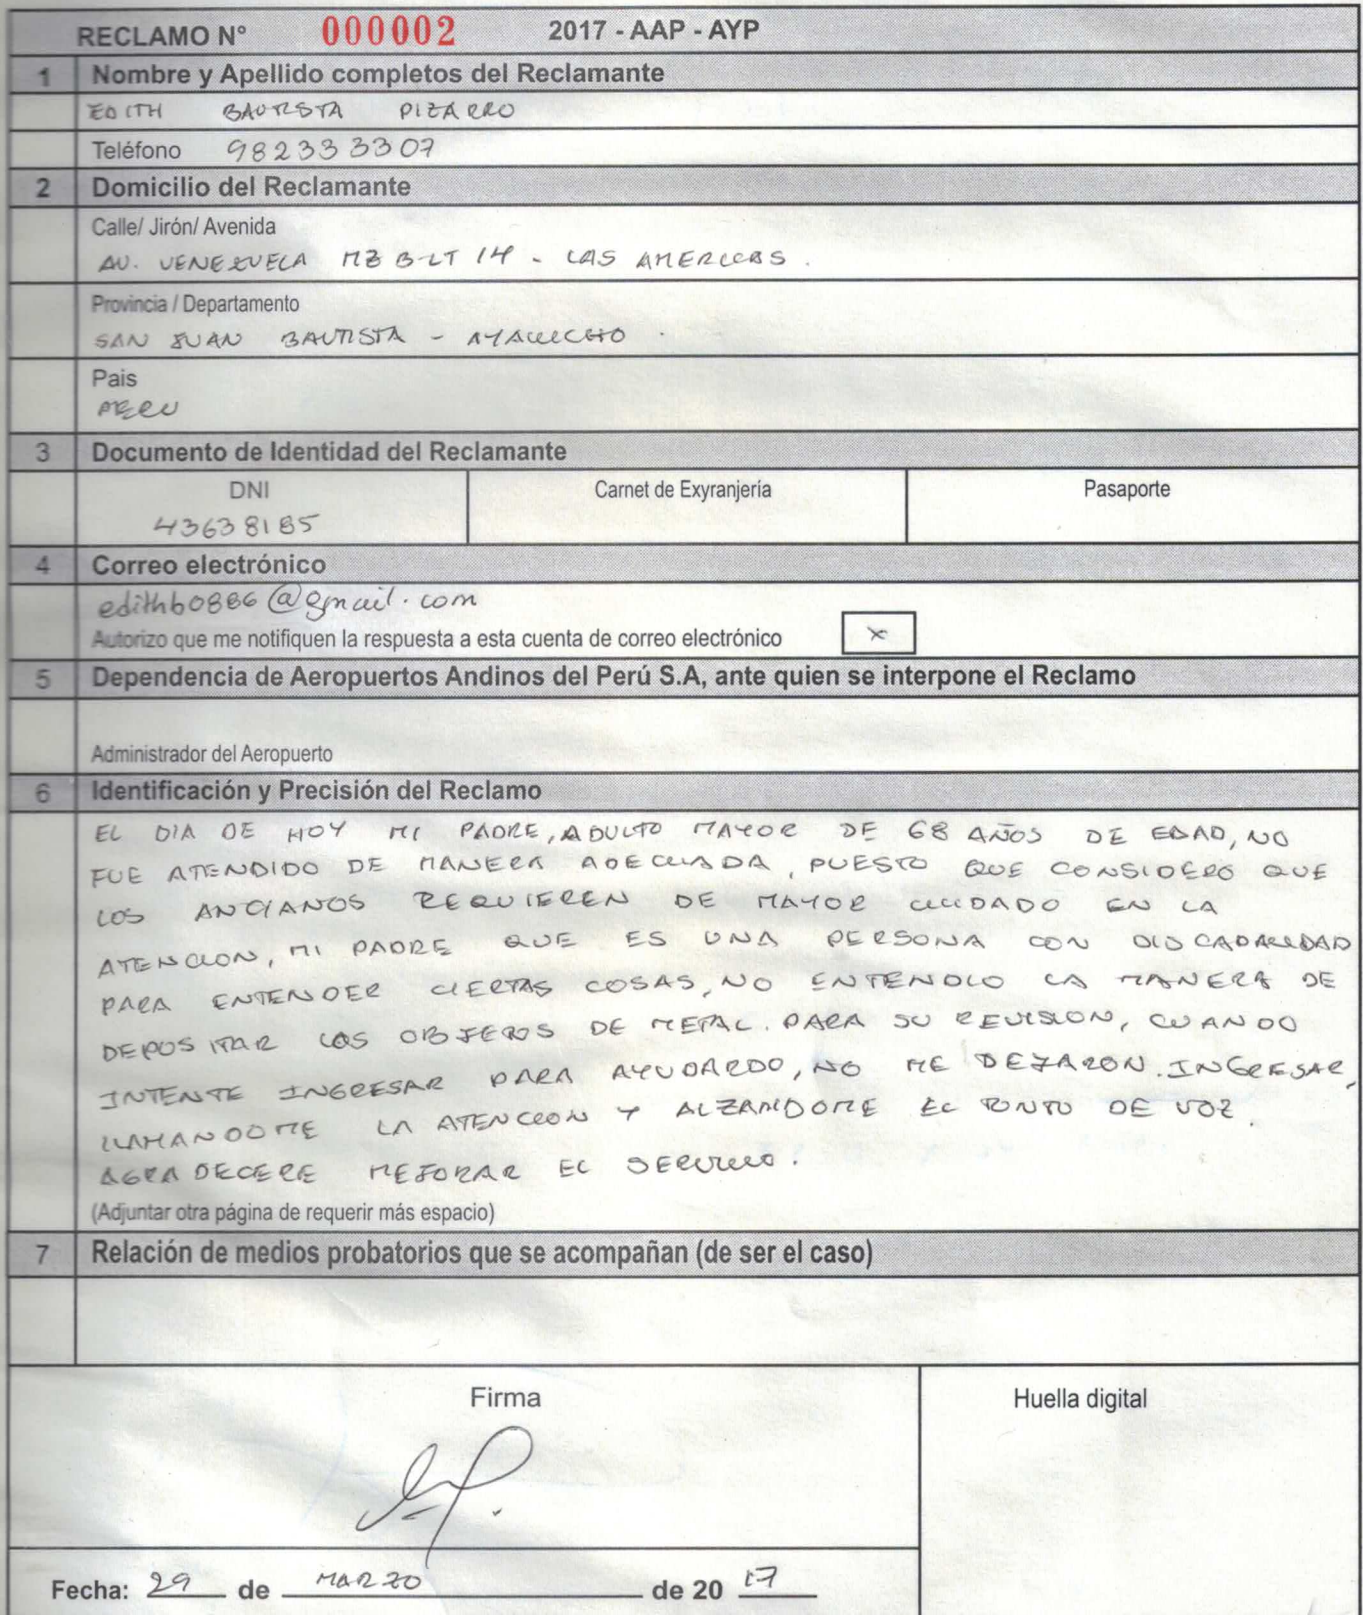 RECLAMO N° 000002 2017 - AAP - AYP
1 Nombre y Apellido completos del Reclamante
EDITH BAUTISTA PIZARRO
Teléfono 982333307
2 Domicilio del Reclamante
Calle/ Jirón/ Avenida
AV. VENEZUELA MZ B-LT 14 - LAS AMERICAS.
Provincia / Departamento
SAN JUAN BAUTISTA - AYACUCHO.
Pais
PERU
3 Documento de Identidad del Reclamante
DNI Carnet de Exyranjería Pasaporte
43638185
4 Correo electrónico
edithb0886@gmail.com
Autorizo que me notifiquen la respuesta a esta cuenta de correo electrónico x
5 Dependencia de Aeropuertos Andinos del Perú S.A, ante quien se interpone el Reclamo
Administrador del Aeropuerto
6 Identificación y Precisión del Reclamo
EL DIA DE HOY MI PADRE, ADULTO MAYOR DE 68 AÑOS DE EDAD, NO
FUE ATENDIDO DE MANERA ADECUADA, PUESTO QUE CONSIDERO QUE
LOS ANCIANOS REQUIEREN DE MAYOR CUIDADO EN LA
ATENCION, MI PADRE QUE ES UNA PERSONA CON DISCAPACIDAD
PARA ENTENDER CIERTAS COSAS, NO ENTENDIO LA MANERA DE
DEPOSITAR LOS OBJETOS DE METAL. PARA SU REVISION, CUANDO
INTENTE INGRESAR PARA AYUDARDO, NO ME DEJARON. INGRESAR,
LLAMANDOME LA ATENCION Y ALZANDOME EL TONTO DE VOZ.
AGRADECERE MEJORAR EL SERVICIO.
(Adjuntar otra página de requerir más espacio)
7 Relación de medios probatorios que se acompañan (de ser el caso)
Firma Huella digital
Fecha: 29 de MARZO de 20 17